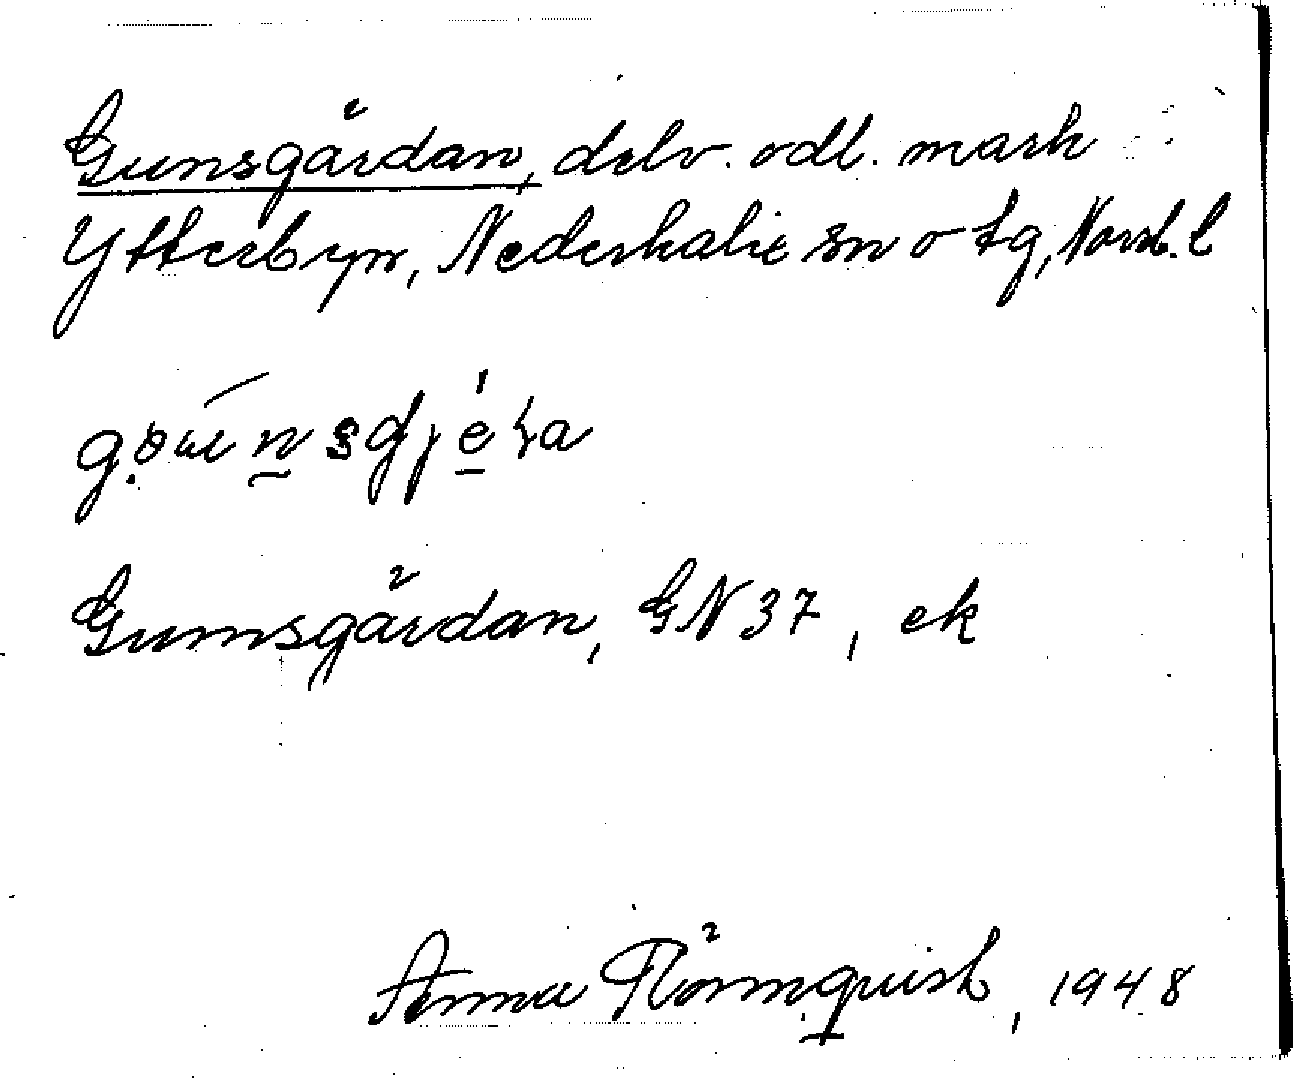 Gunsgärdan, delv. odl. mark
Ytterbyn, Nederkalix sn o tg, Norrb. l
Gumsgärdan, GN 37, ek
Anna Römquist, 1948